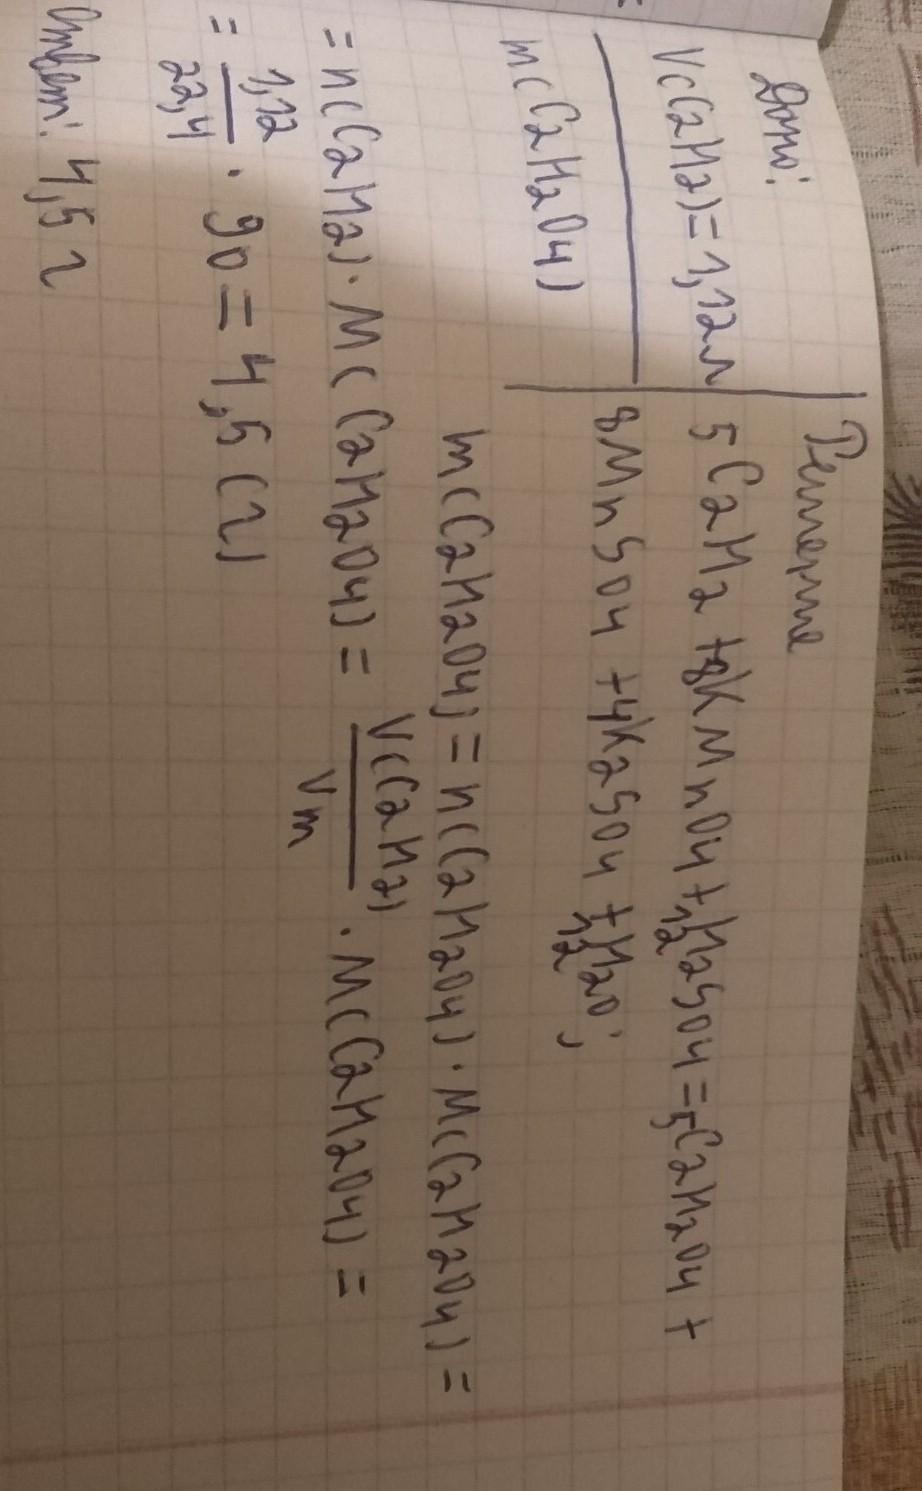 Дано:
V(C2H2)=1,12л
m(C2H2O4)
Решение
5C2H2 + 8KMnO4 + 12H2SO4 = 5C2H2O4 +
8MnSO4 + 4K2SO4 + 12H2O;
m(C2H2O4) = n(C2H2O4) · M(C2H2O4) =
= n(C2H2) · M(C2H2O4) = V(C2H2) / Vm · M(C2H2O4) =
= 1,12 / 22,4 · 90 = 4,5 (г)
Ответ: 4,5 г